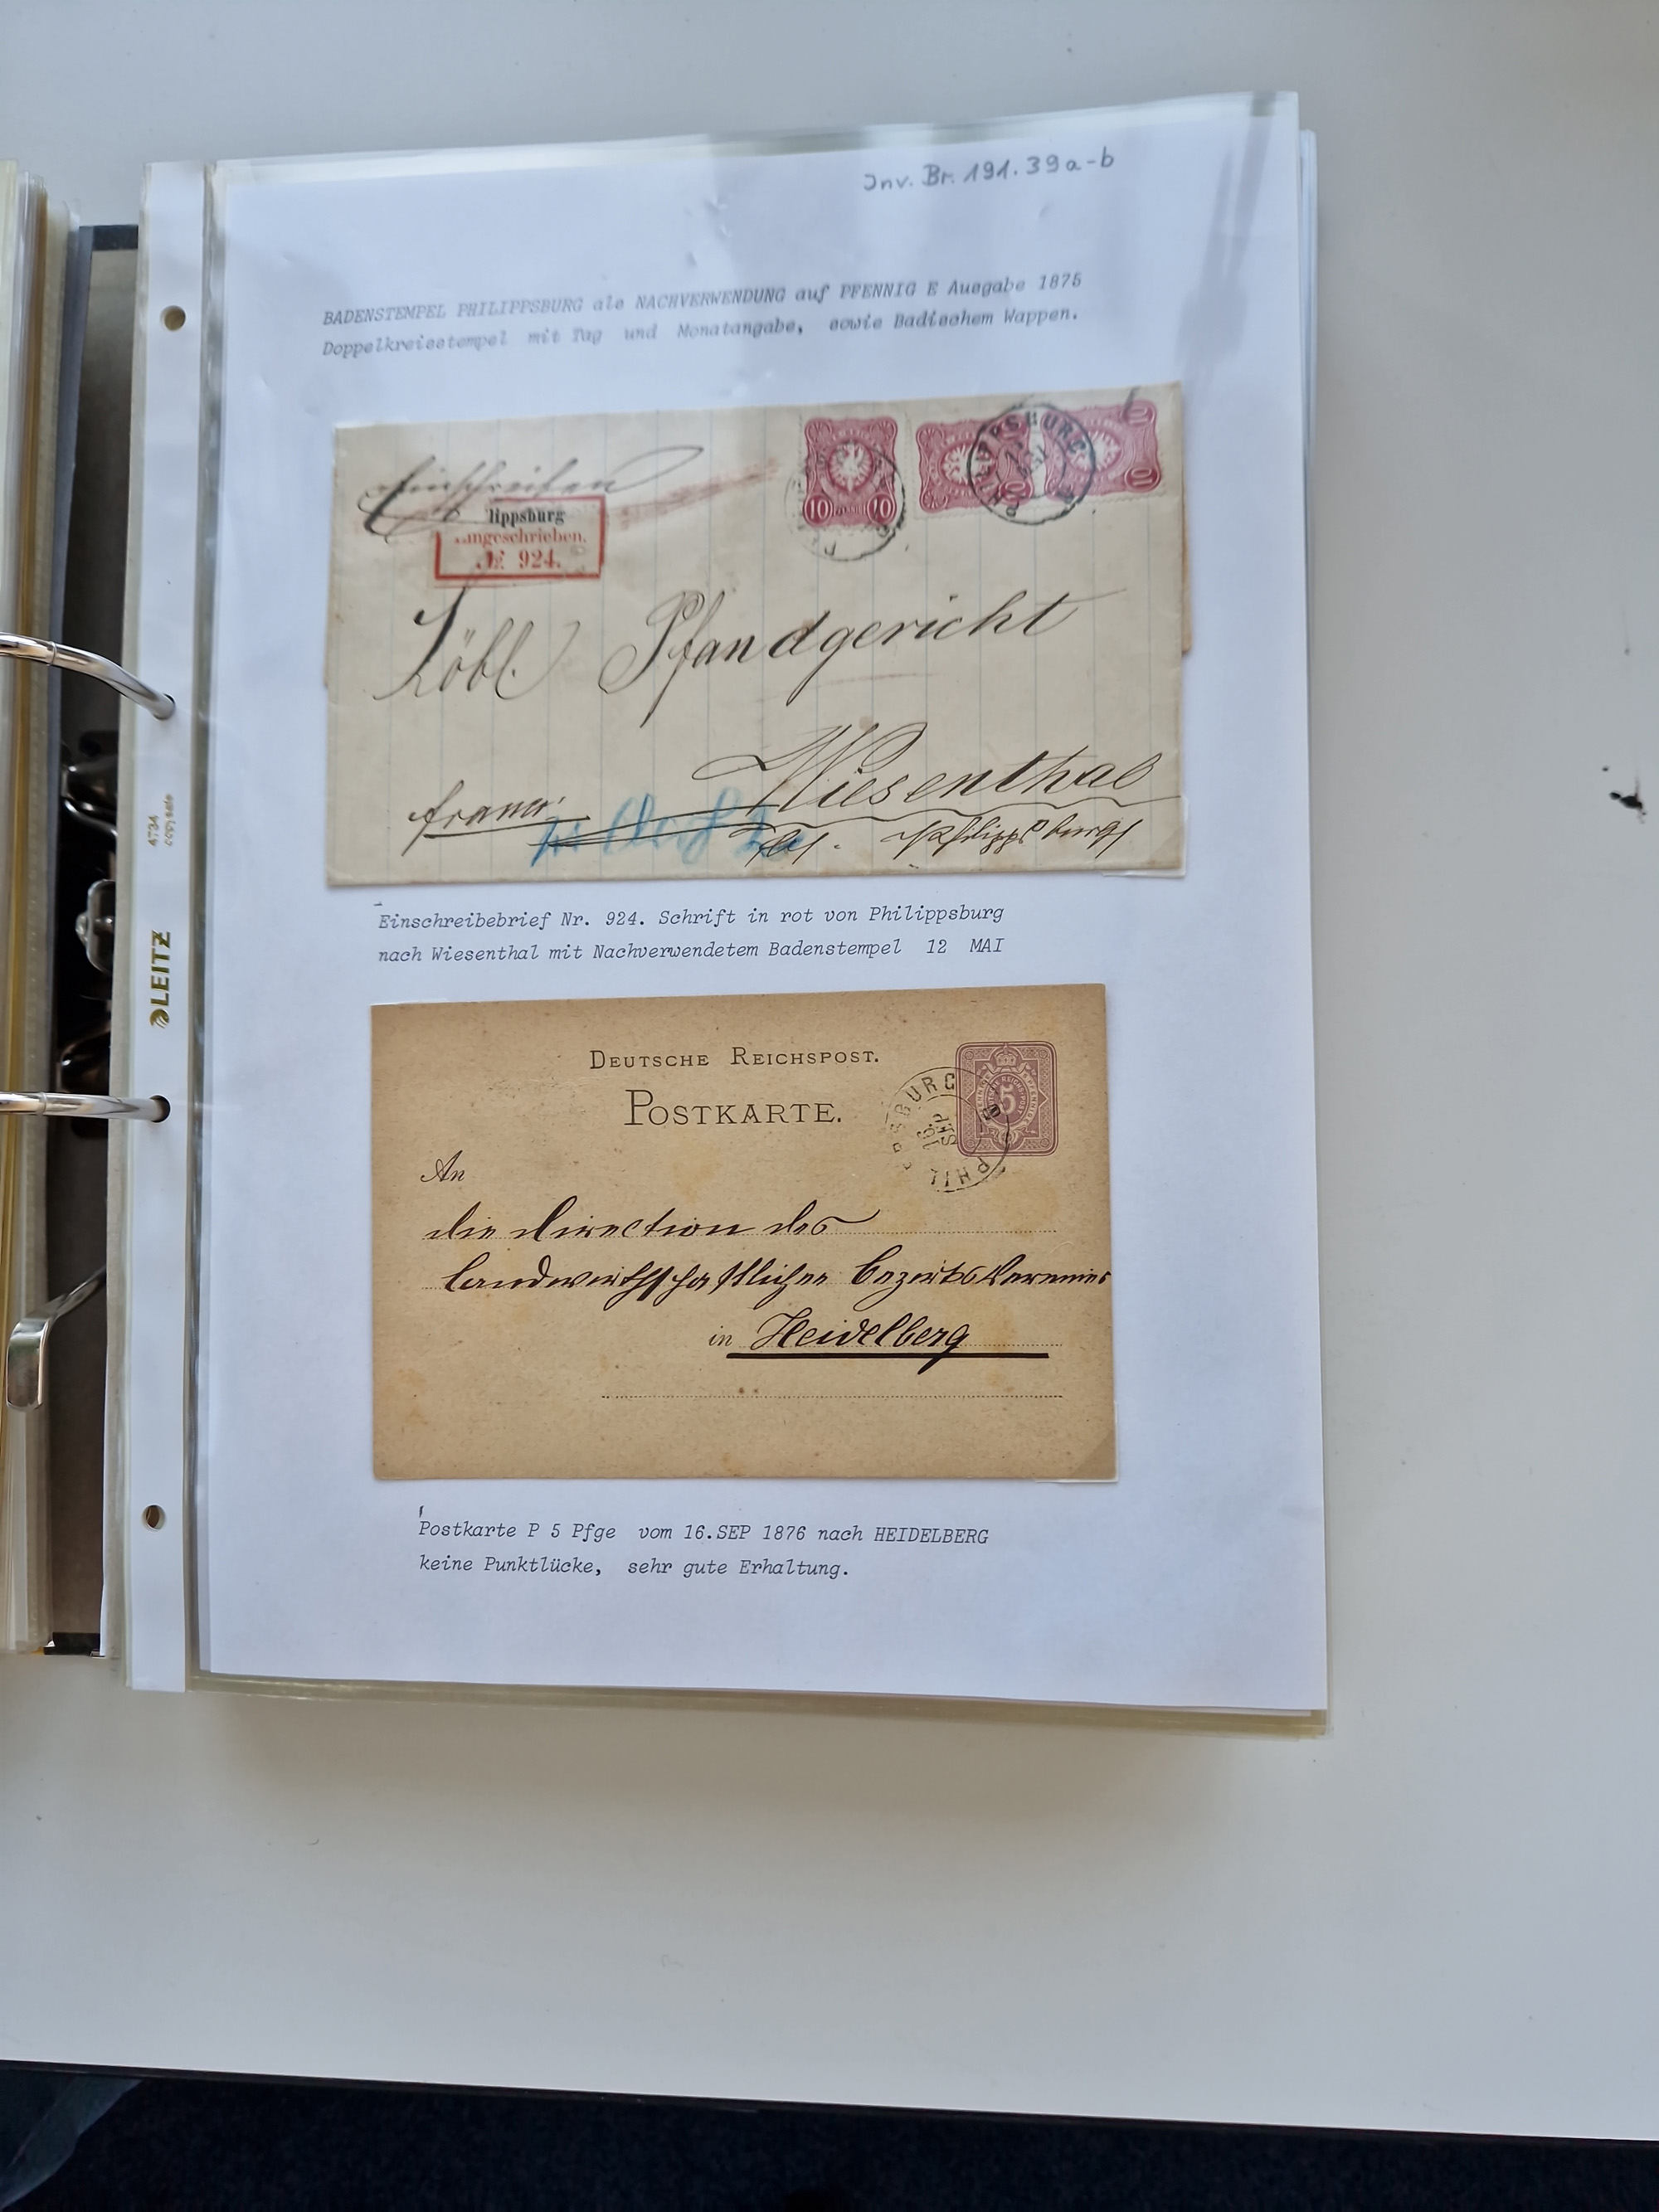 Inv. Br. 191.39a-b
BADENSTEMPEL PHILIPPSBURG als NACHVERWENDUNG auf PFENNIG E Ausgabe 1875
Doppelkreisstempel mit Tag und Monatangabe, sowie Badischem Wappen.
Einschreiben
lippsburg
ngeschrieben.
№ 924.
10 10
PHILIPPSBURG
Löbl. Pfandgericht
Wiesenthal
franco
Philippsburg
Einschreibebrief Nr. 924. Schrift in rot von Philippsburg
nach Wiesenthal mit Nachverwendetem Badenstempel 12 MAI
DEUTSCHE REICHSPOST.
POSTKARTE.
5
PHILIPPSBURG
16
SEP
An
die Direction des
landwirthschaftlichen Bezirks Vereines
in Heidelberg
Postkarte P 5 Pfge vom 16.SEP 1876 nach HEIDELBERG
keine Punktlücke, sehr gute Erhaltung.
4734
LEITZ